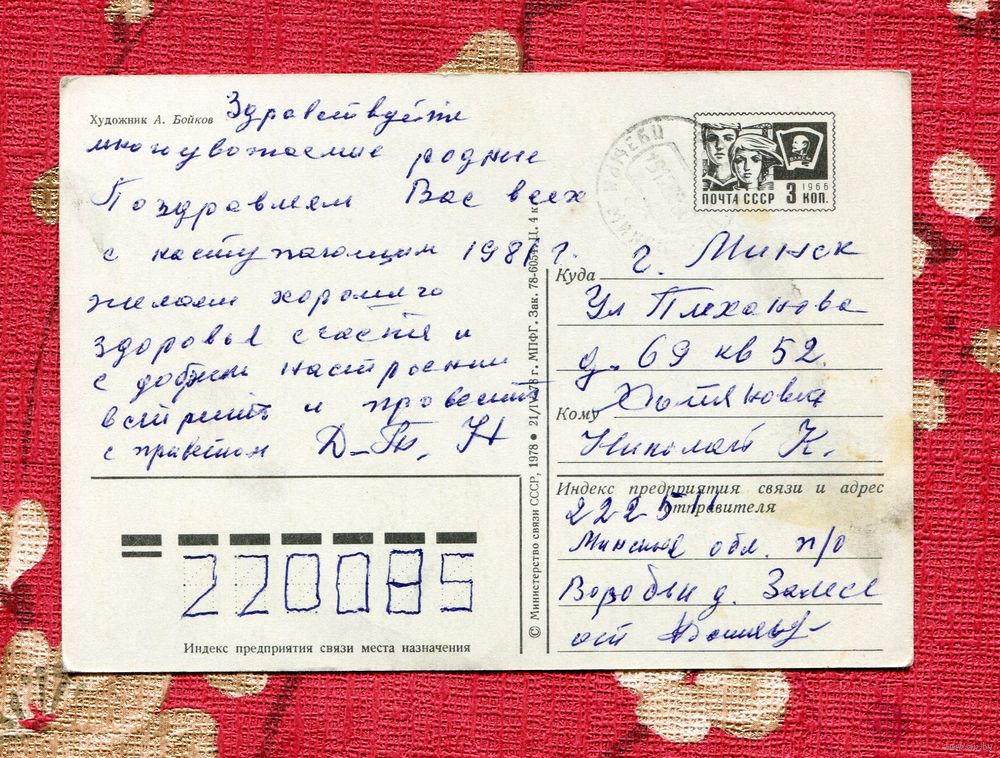 Художник А. Бойков
Здравствуйте
многоуважаемые родные
Поздравляем Вас всех
с наступающим 1981 г.
желаем хорошего
здоровья счастя и
с добрым настроении
встретить и провести
с приветом Д-Т. Н
220085
Индекс предприятия связи места назначения
© Министерство связи СССР, 1978 ● 21/IV-78 г. МПФГ. Зак. 78-6054. Ц. 4 к
ВЛКСМ
1966
ПОЧТА СССР 3 КОП.
Куда г. Минск
Ул Плеханова
д. 69 кв 52.
Кому
Николай К.
Индекс предприятия связи и адрес
отправителя
222511
Минская обл. п/о
Воробьи д. Залесе
от